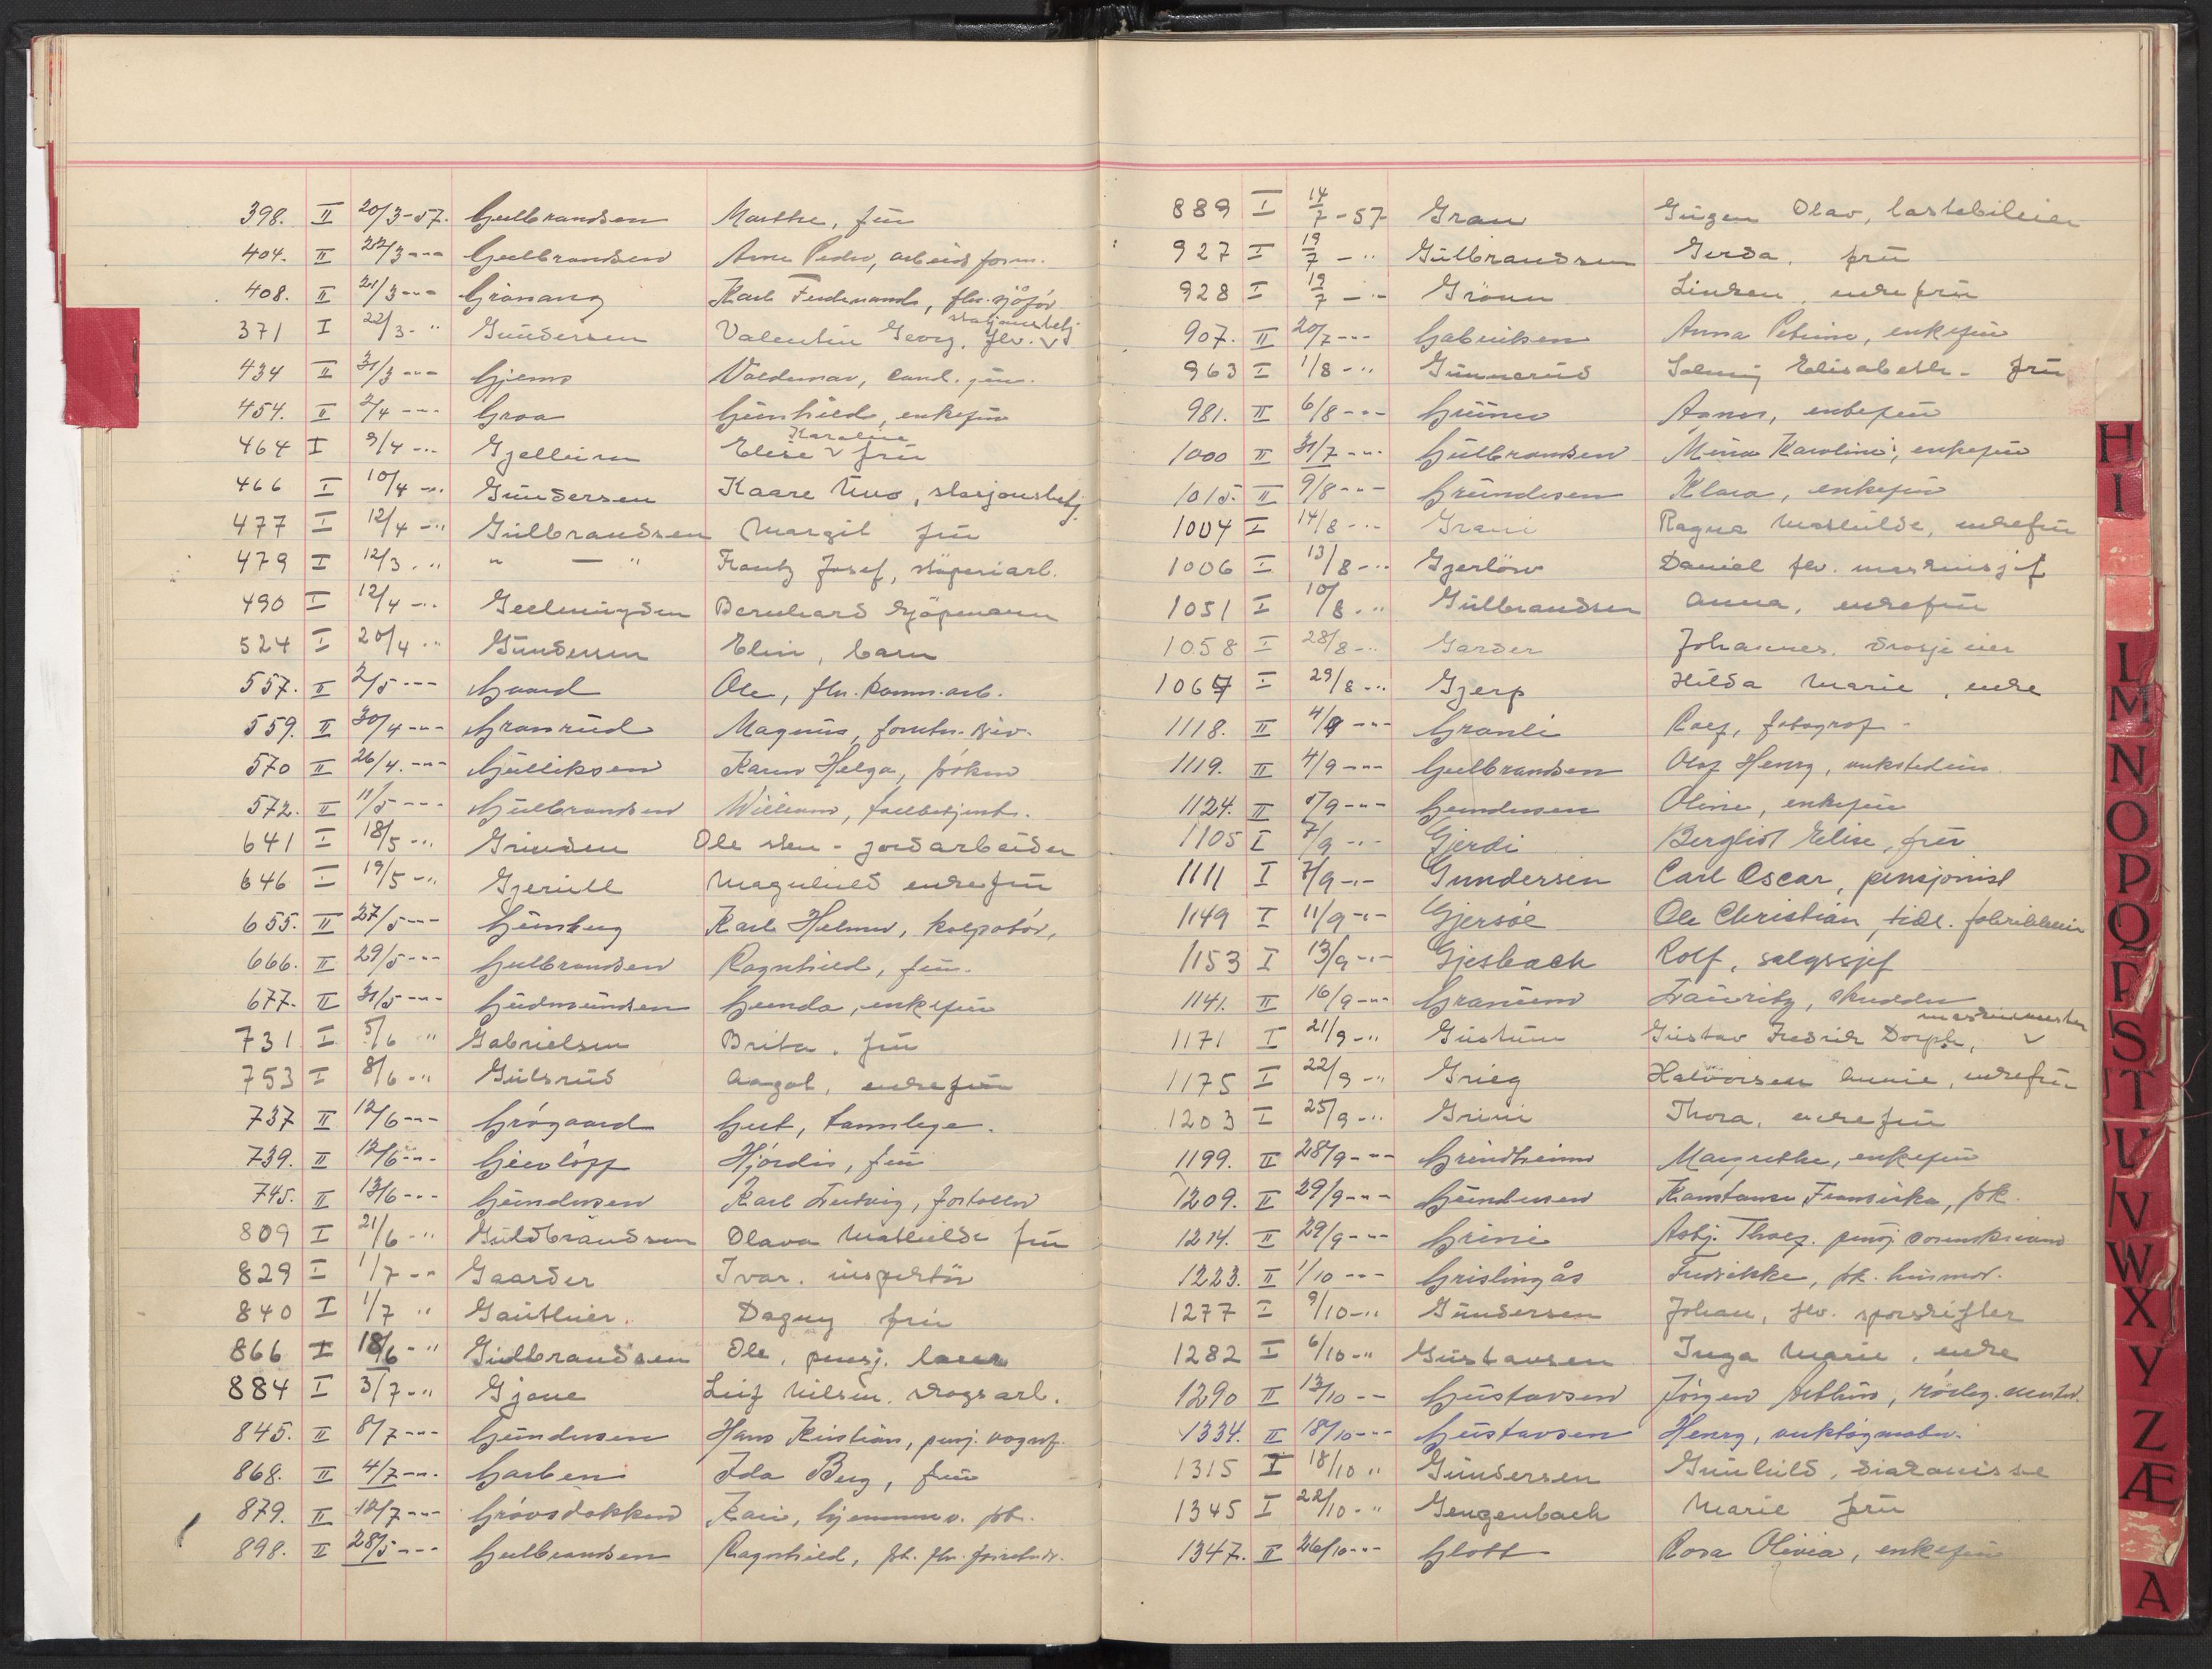 398. II 20/3-57. Gulbrandsen Marthe, frü
404. II 22/3 -"- Gulbrandsen Arne Pedro, arbeidsform.
408. II 21/3 -"- Karl Ferdinand, fhv. sjåfør
stasjonsbetj
371 I 22/3 - " Gündersen Valentin Georg, fhv. v
434 II 31/3 -"- Gjems Valdemar, cand. jur.
454. II 2/4 -"- Groa Günhild, enkefrü
Karoline
464 I 9/4 -" Gjelleirsn Elise v frü
466 I 10/4 -" Gündersen Kaare Uno, stasjonsbetj.
477 I 12/4 -" Gülbrandsen Margit frü
479 I 12/3 . " " — " Frantz Josef, støperiarb.
490 I 12/4 -" Geelmuyden Bernhard kjøpmann
524 I 20/4 " Gündersen Elin, barn
557. II 2/5 -"- Gaard Ole, fhv. komm. arb.
559. II 30/4 -"- Granrüd Magnüs
570 II 26/4. -"- Gülliksen Karen Helga, frøken
572. II 11/5 -"- Gülbrandsen William, tollbetjent.
641 I 18/5 -" Grinden Ole sten - jordarbeider
646 I 19/5 -" Gjerüll Magnhild enkefrü
655. II 27/5 -"- Günsberg Karl Helmer, kolportør,
666. II 29/5 -"- Gulbrandsen Ragnhild, frü.
677. II 31/5 -"- Güdmündsen Gunda, enkefrü
731 I 5/6 " Gabrielsen Brita. frü
753 I 8/6 -" Gülsrüd Aagot, enkefrü
737 II 12/6 -"- Grøgaard Gert, tannlege.
739. II 12/6 -"- Gierløff Hjørdis, frü
745. II 13/6 -"- Gündersen Karl Ludvig
809 I 21/6 -" Güldbrandsen Olava Mathilde frü
829 I 1/7 -" Gaarder Ivar. inspektør
840 I 1/7 " Gauthier. Dagny frü
866 I 18/6 - " Güdbrandsen Ole, pensj. lærer
884 I 3/7 -" Gjone Leif Nilsen. skogsarb.
845. II 8/7 -"- Gündersen Hans Kristian, pensj. vognf.
868. II 4/7 -"- Garben Ida Berg, frü
879. II 12/7 -"- Grøvsdokken Kari, hjemmev. frk.
898. II 28/5 -"- Gulbrandsen Ragnhild, frk. fhv.
889 I 14/7 - 57 Gran Jürgen Olav, lastebileier
927 I 19/7 - " Gülbrandsen Gerda. frü
928 I 19/7 - " Grönn Linken, enkefrü
907. II 20/7 -"- Gabrielsen Anna Petrine, enkefrü
963 I 1/8 -" Günnerüd Solveig Elisabeth - frü
981. II 6/8 -"- Grüner Agnes, enkefrü
1000 II 31/7 -"- Gülbrandsen Mina Karoline, enkefrü
1015. II 9/8 -"- Gründesen Klara, enkefrü
1004 I 14/8 -" Grani Ragna Mathilde, enkefrü
1006 I 13/8 -" Gjerløw Daniel fhv. maskinsjef
1051 I 10/8 . " Gülbrandsen Anna, enkefrü
1058 I 28/8 -" Garder Johannes. drosjeeier
1067 I 29/8 -" Gjerp Hilda Marie, enke
1118. II 4/9 -"- Granli Rolf, fotograf -
1119. II 4/9 -"- Gulbrandsen Olaf Henry
1124. II 5/9 -"- Gundersen Oline, enkefrü
1105 I 7/9 -" Gjerdi Bergliot Elise, frü
1111 I 7/9 -" Gundersen Carl Oscar, pensjonist
1149 I 11/9 -" Gjersøe Ole Christian, tidl. fabrikkeier
1153 I 13/9 -" Gjesbach Rolf, salgssjef
1141. II 16/9 -"- Granum Lauritz, skredder
maskinmester
1171 I 21/9 -" Güstüm Güstav Fredrik Dorph, v
1175 I 22/9 -" Grieg Halvorsen Annie, enkefrü
1203 I 25/9 -" Grini Thora, enkefrü
1199. II 28/9 -"- Grindheim Margrethe, enkefrü
1209. II 29/9 -"- Gündersen Konstanse Fransiska, frk.
1214. II 29/9 -"- Grini Asbj. Thorf. pensj. sorenskriver
1223. II 1/10 -"- Grislingås Fredrikke, frk. hüsmor.
1277 I 9/10 -" Gündersen Johan, fhv. sporskifter
1282 I 6/10 -" Güstavsen Inga Marie, enke
1290 II 13/10 -- Güstavsen Jørgen Arthur, rørlegg. mester.
1334. II 18/10 -"- Güstavsen Henry
1315 I 18/10 " Gündersen Günhild, diakonisse
1345 I 22/10 - " Gengenbach Marie frü
1347. II 26/10 -"- Glott Rosa Olivia, enkefrü
H
I
L
M
N
O
P
Q
R
S
T
U
V
W
X
Y
Z
Æ
A